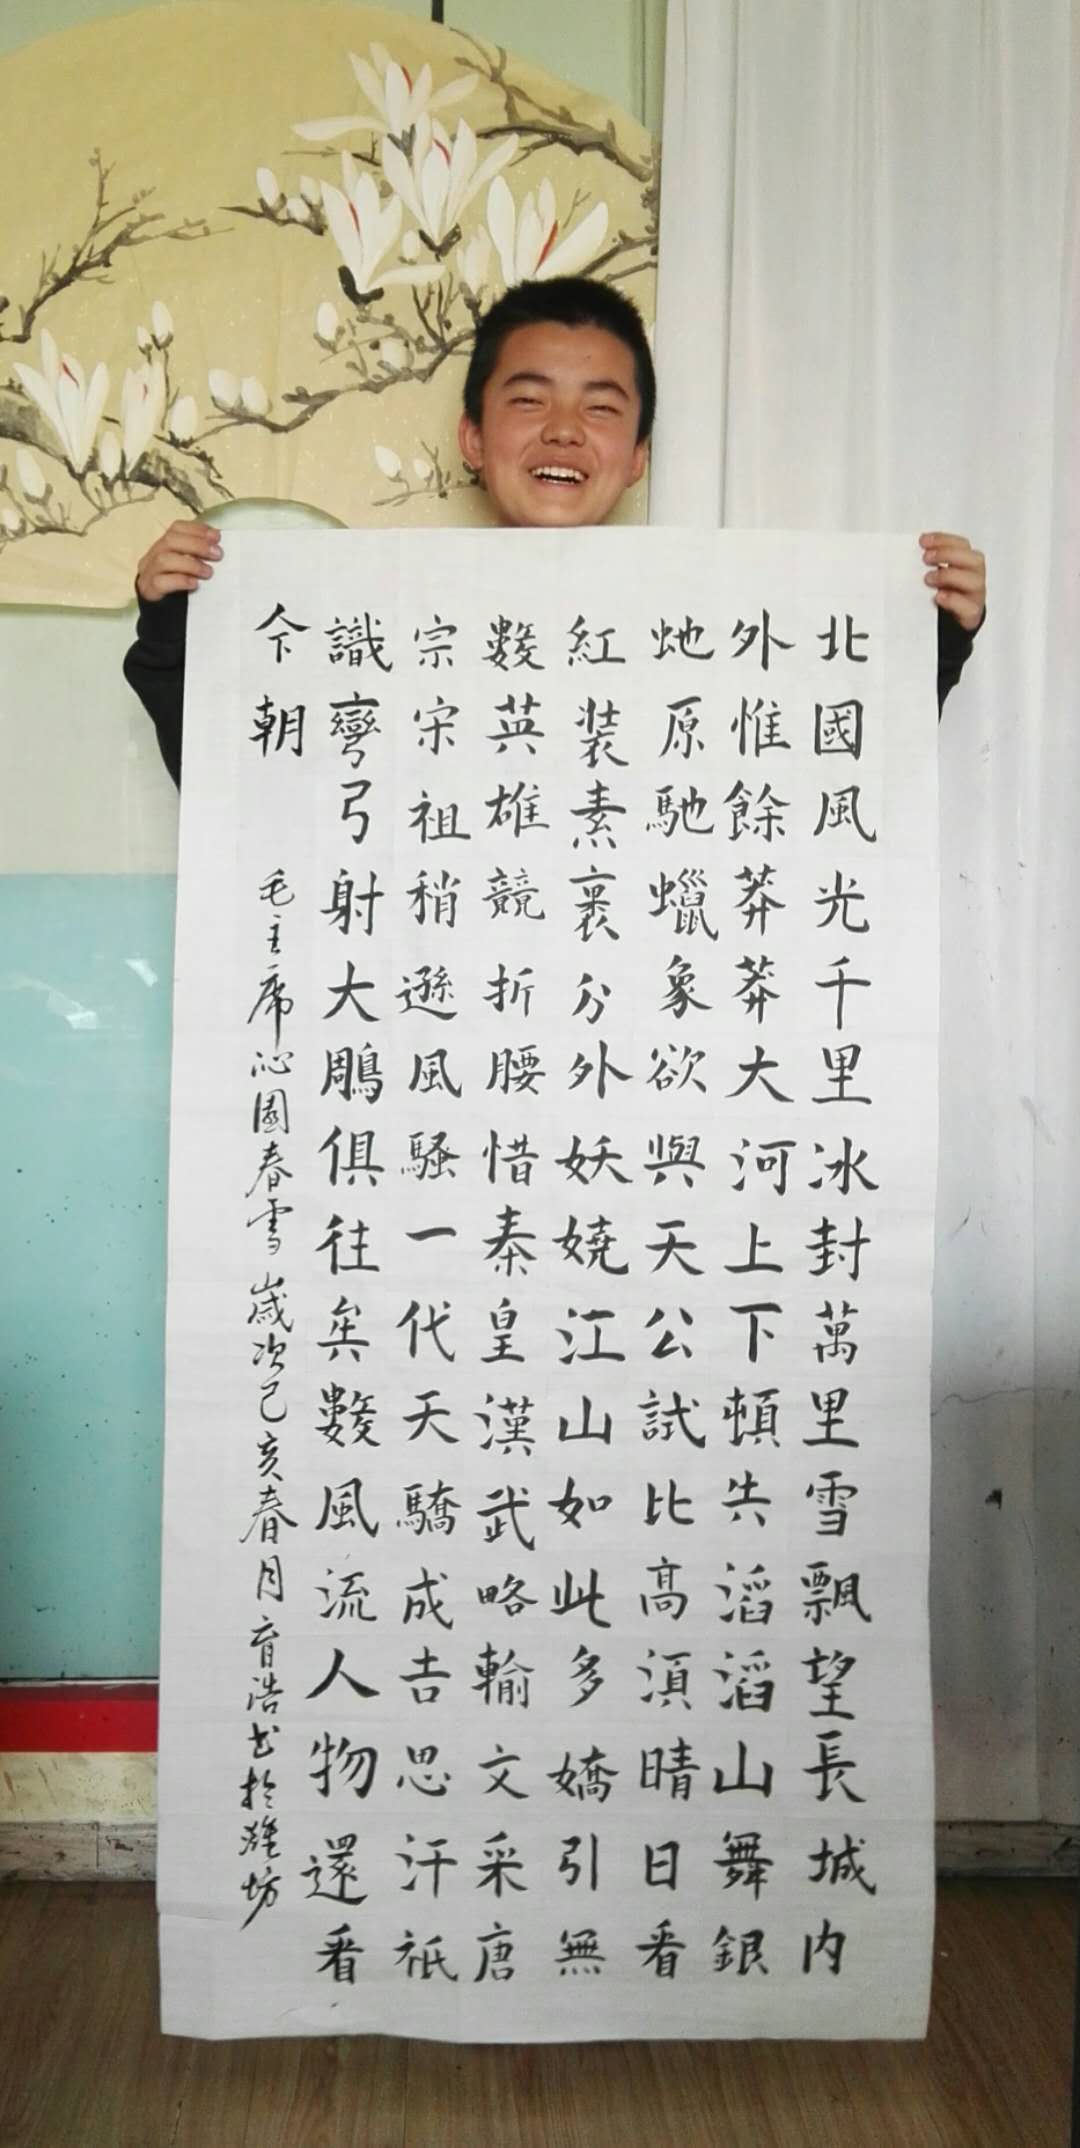 北國風光千里冰封萬里雪飄望長城内
外惟餘莽莽大河上下頓失滔滔山舞銀
虵原馳蠟象欲與天公試比高湏晴日看
紅装素裹分外妖嬈江山如此多嬌引無
數英雄競折腰惜秦皇漢武略輸文采唐
宗宋祖稍遜風騷一代天驕成吉思汗祇
識彎弓射大鵰俱往矣數風流人物還看
今朝
毛主席沁園春雪 歲次己亥春月育浩书於濰坊